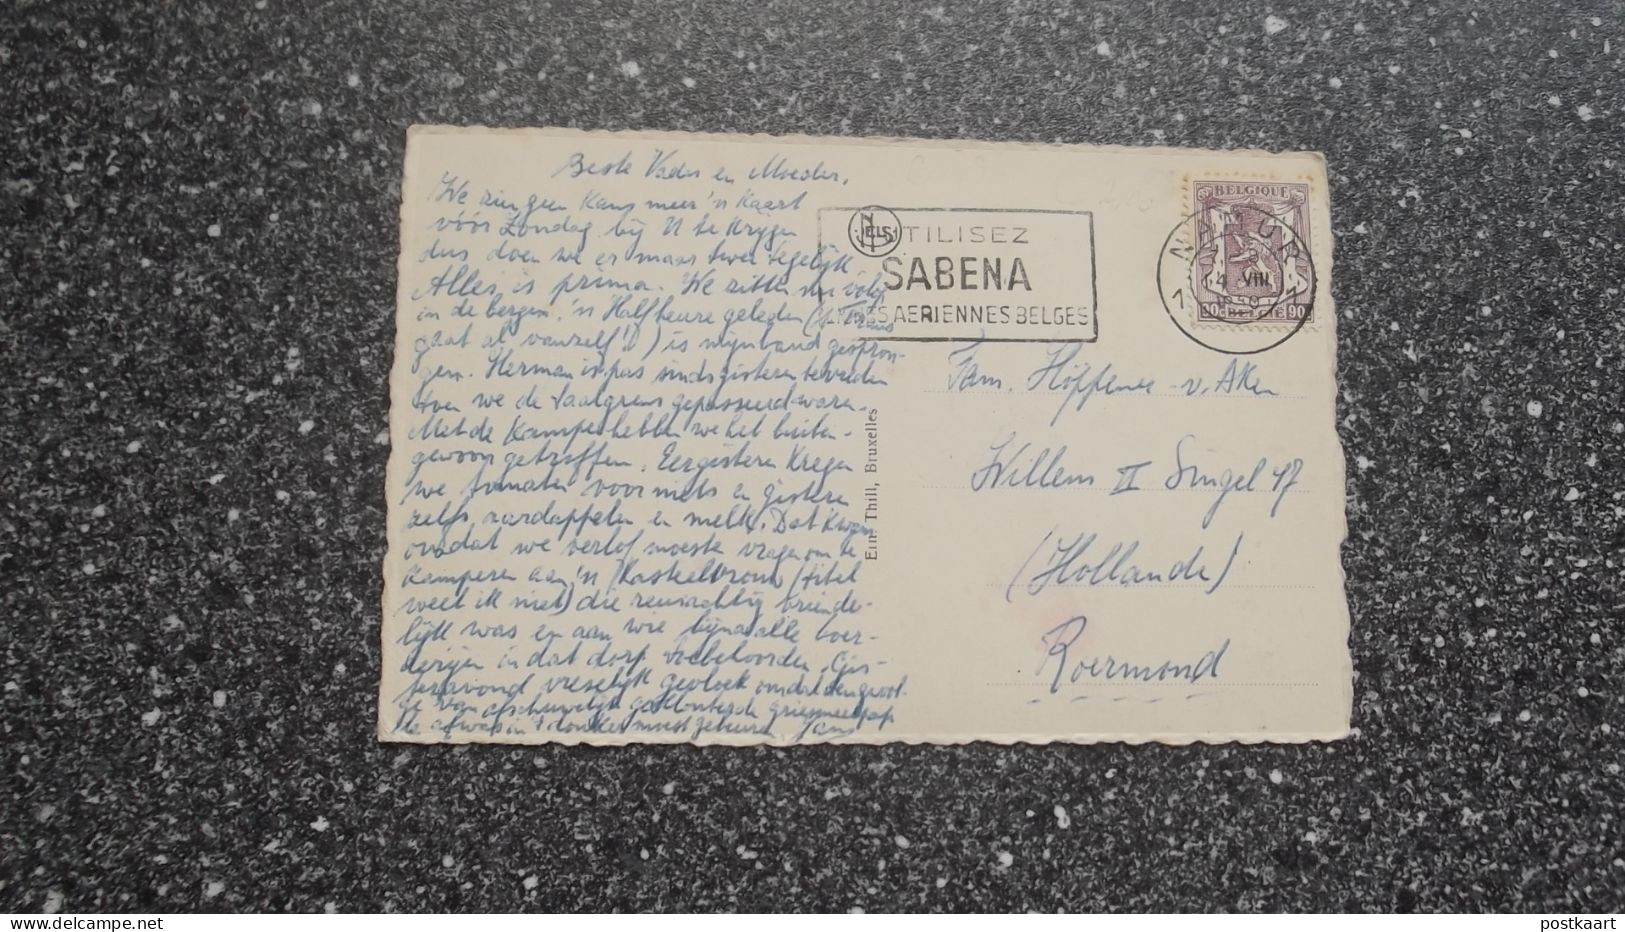 Beste Vader en Moeder,
We zien geen kans meer 'n kaart
vóór Zondag bij U te krygen
dus doen we er maar twee tegelyk.
Alles is prima. We zitten nu volop
in de bergen, 'n Half heure geleden
gaat al vanzelf!!) is mijn band gespron-
gen. Herman is pas sinds gisteren tevreden
toen we de taalgrens gepasseerd waren.
Met de Kamperhebben we het buiten-
gewoon getroffen. Eergisteren kregen
we tomaten voor niets en gisteren
zelfs aardappelen en melk. Dat kwam
omdat we verlof moeste vragen om te
Kamperen aan 'n (Kasteelvrouw (titel
weet ik niet) die reusachtig vriende-
lijk was en aan wie bijna alle boer-
derijen in dat dorp toebehoorden. Gis-
teravond vreselijk gevloek omdat den
van afschuwelijk geklonterde griesmeelpap
te afwas in 't donker moest gebeuren Jans
NELS
UTILISEZ
SABENA
LIGNES AERIENNES BELGES
NAMUR
1 1
4 VIII
BELGIQUE
90 c BELGIE 90
Ern. Thill, Bruxelles
Fam. Höppener - v. Aken
Willem II Singel 47
(Hollande)
Roermond
postkaart